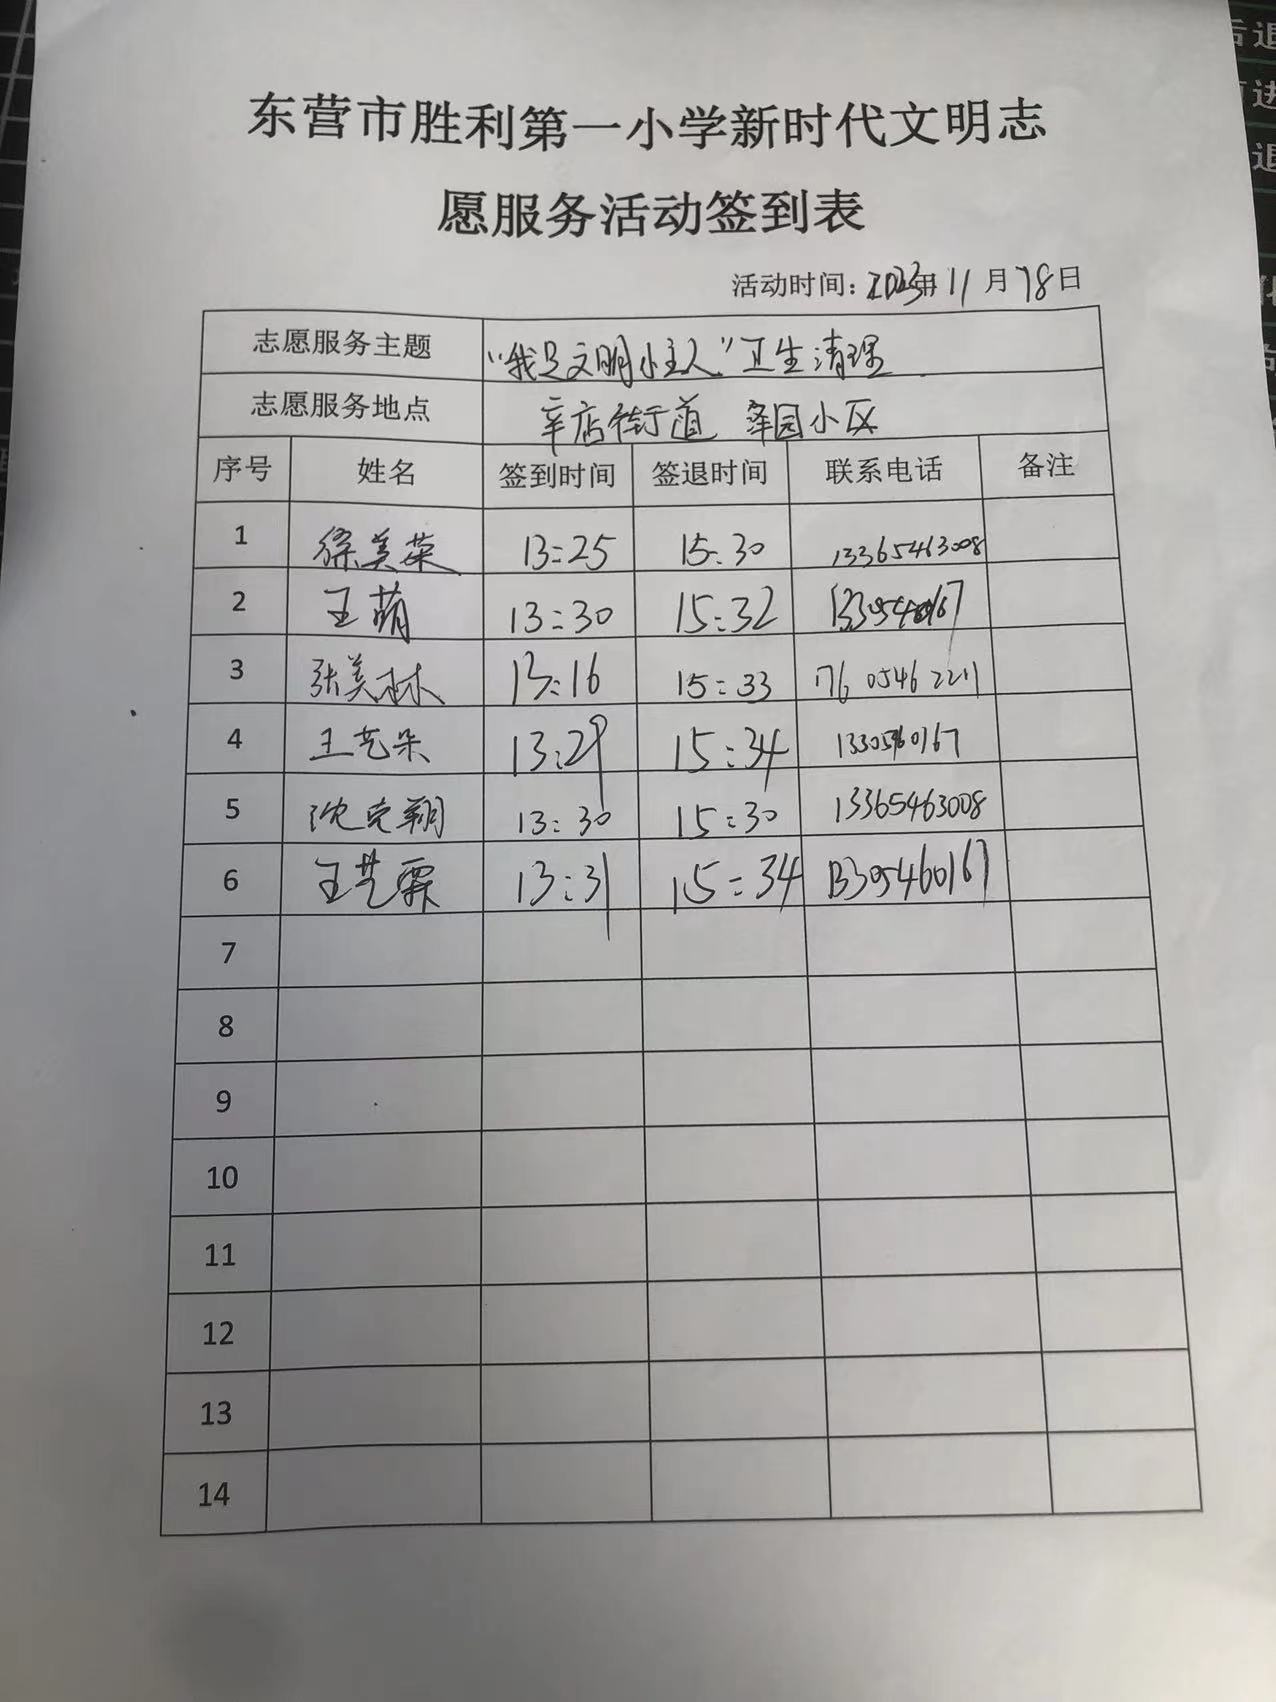 东营市胜利第一小学新时代文明志
愿服务活动签到表
活动时间：2023年11月18日
志愿服务主题 “我是文明小主人”卫生清理
志愿服务地点 辛店街道 泽园小区
序号 姓名 签到时间 签退时间 联系电话 备注
1 徐美荣 13:25 15:30 13365463008
2 王萌 13:30 15:32
3 张美林 13:16 15:33 176 0546 2211
4 王艺朵 13:29 15:34
5 沈克翔 13:30 15:30 13365463008
6 王艺霖 13:31 15:34 13305460167
7
8
9
10
11
12
13
14
后退
进
退